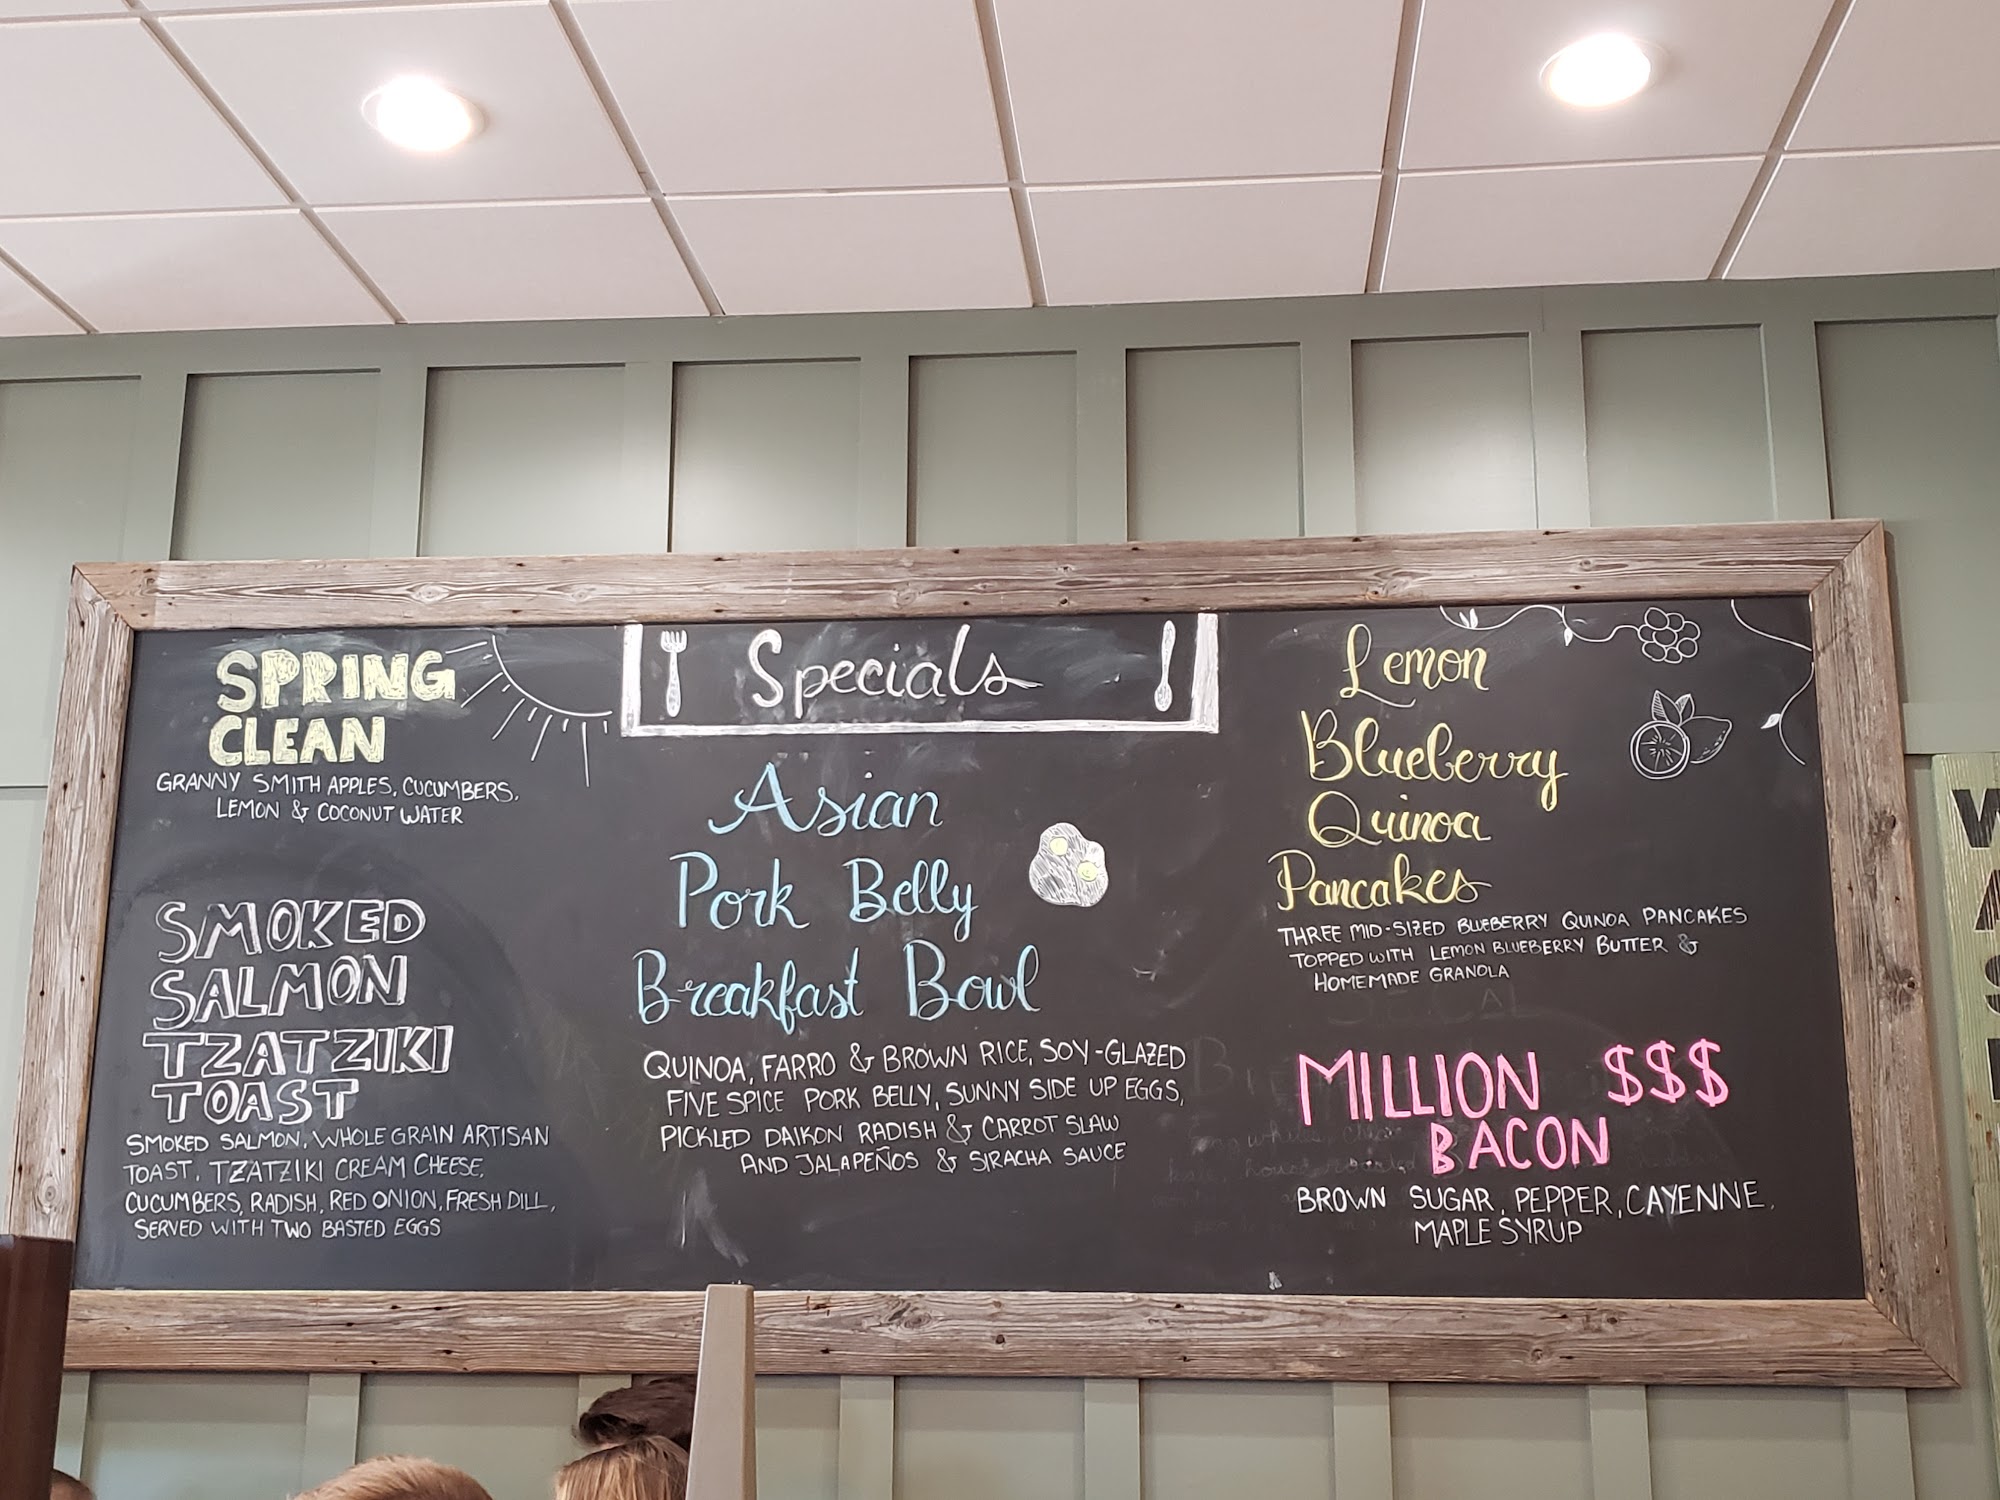 Specials
SPRING
CLEAN
GRANNY SMITH APPLES, CUCUMBERS,
LEMON & COCONUT WATER
SMOKED
SALMON
TZATZIKI
TOAST
SMOKED SALMON, WHOLE GRAIN ARTISAN
TOAST, TZATZIKI CREAM CHEESE,
CUCUMBERS, RADISH, RED ONION, FRESH DILL,
SERVED WITH TWO BASTED EGGS
Asian
Pork Belly
Breakfast Bowl
QUINOA, FARRO & BROWN RICE, SOY-GLAZED
FIVE SPICE PORK BELLY, SUNNY SIDE UP EGGS,
PICKLED DAIKON RADISH & CARROT SLAW
AND JALAPEÑOS & SIRACHA SAUCE
Lemon
Blueberry
Quinoa
Pancakes
THREE MID-SIZED BLUEBERRY QUINOA PANCAKES
TOPPED WITH LEMON BLUEBERRY BUTTER &
HOMEMADE GRANOLA
MILLION $$$
BACON
BROWN SUGAR, PEPPER, CAYENNE,
MAPLE SYRUP